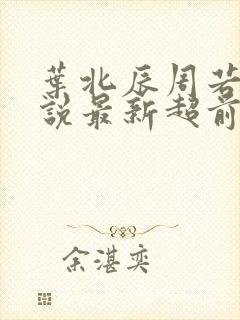 葉北辰周若
説最新超前
余湛奕